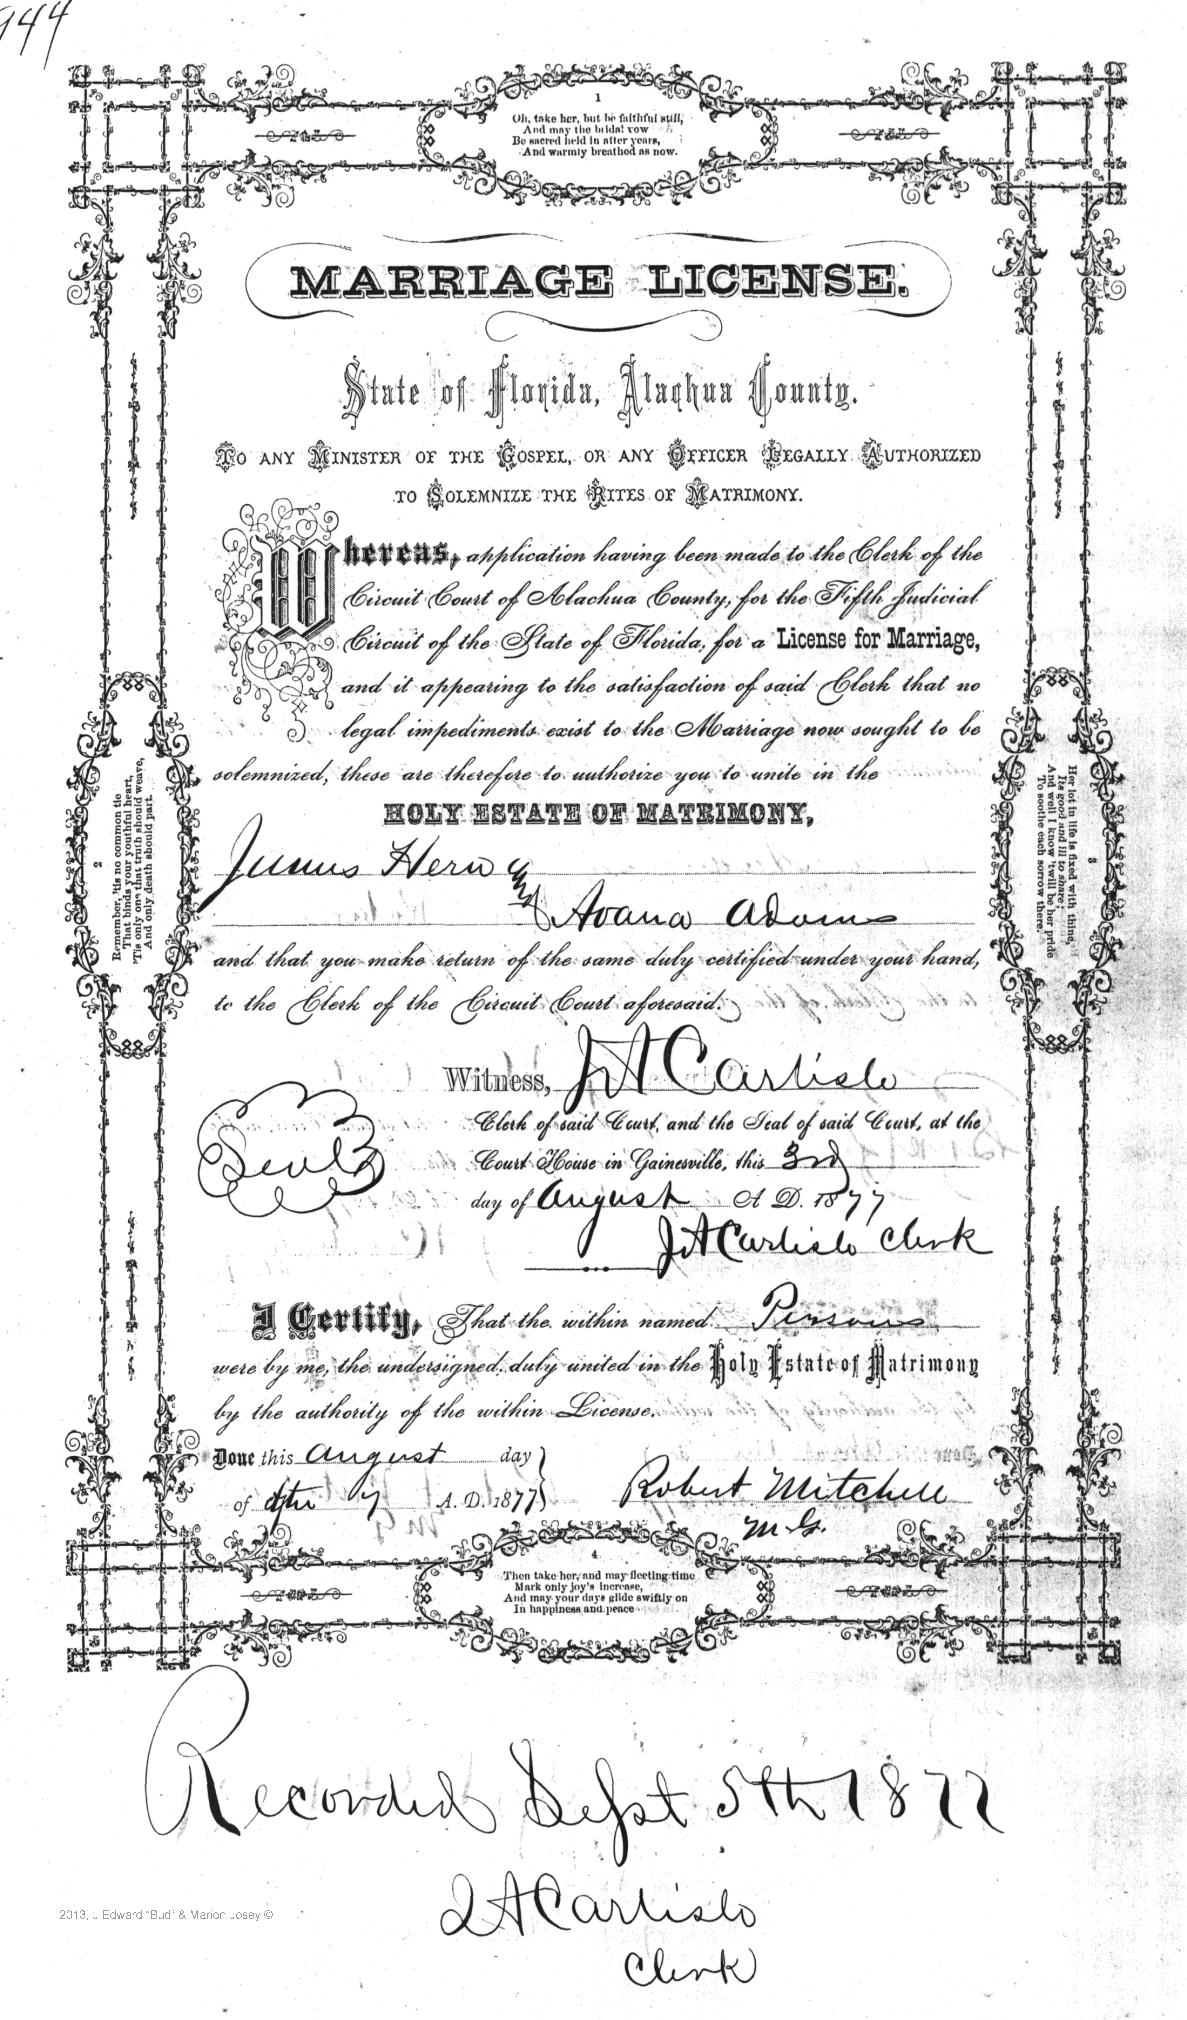 944
1
Oh, take her, but be faithful still,
And may the bridal vow
Be sacred held in after years,
And warmly breathed as now.
MARRIAGE LICENSE.
State of Florida, Alachua County.
TO ANY MINISTER OF THE GOSPEL, OR ANY OFFICER LEGALLY AUTHORIZED
TO SOLEMNIZE THE RITES OF MATRIMONY.
Whereas, application having been made to the Clerk of the
Circuit Court of Alachua County, for the Fifth Judicial
Circuit of the State of Florida, for a License for Marriage,
and it appearing to the satisfaction of said Clerk that no
legal impediments exist to the Marriage now sought to be
solemnized, these are therefore to authorize you to unite in the
HOLY ESTATE OF MATRIMONY,
Junius
and Adams
and that you make return of the same duly certified under your hand,
to the Clerk of the Circuit Court aforesaid.
Witness, J A Carlisle
Clerk of said Court, and the Seal of said Court, at the
Seal
Court House in Gainesville, this 3rd
day of August A D. 1877
J A Carlisle Clerk
I Certify, That the within named Persons
were by me, the undersigned, duly united in the Holy Estate of Matrimony
by the authority of the within License.
Done this August day
of 7 A. D. 1877
Robert Mitchell
M. G.
4
Then take her, and may fleeting time
Mark only joy's increase,
And may your days glide swiftly on
In happiness and peace
2
Remember, 'tis no common tie
That binds your youthful heart,
'Tis only one that truth should weave,
And only death should part.
3
Her lot in life is fixed with thine,
Its good and ill to share;
And well I know 'twill be her pride
To soothe each sorrow there.
Recorded Sept 5th 1877
J A Carlisle
Clerk
2013, J Edward "Bud" & Marion Josey ©